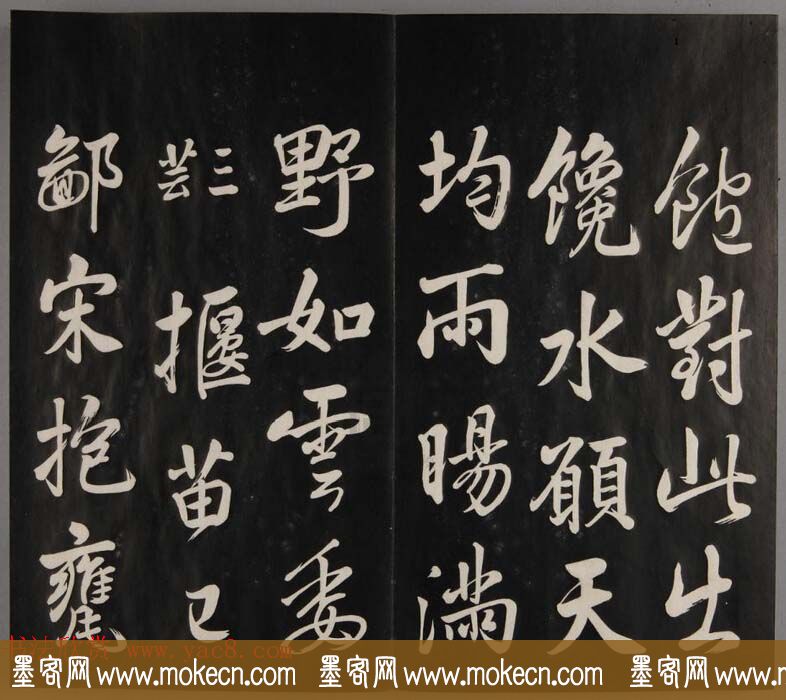 飽對此生
饞水願天
均雨暘滿
野如雲委
三芸
揠苗已
鄙宋抱甕
www.yac8.com
墨客网 www.mokecn.com 墨客网 www.mokecn.com 墨客网 www.mokecn.com